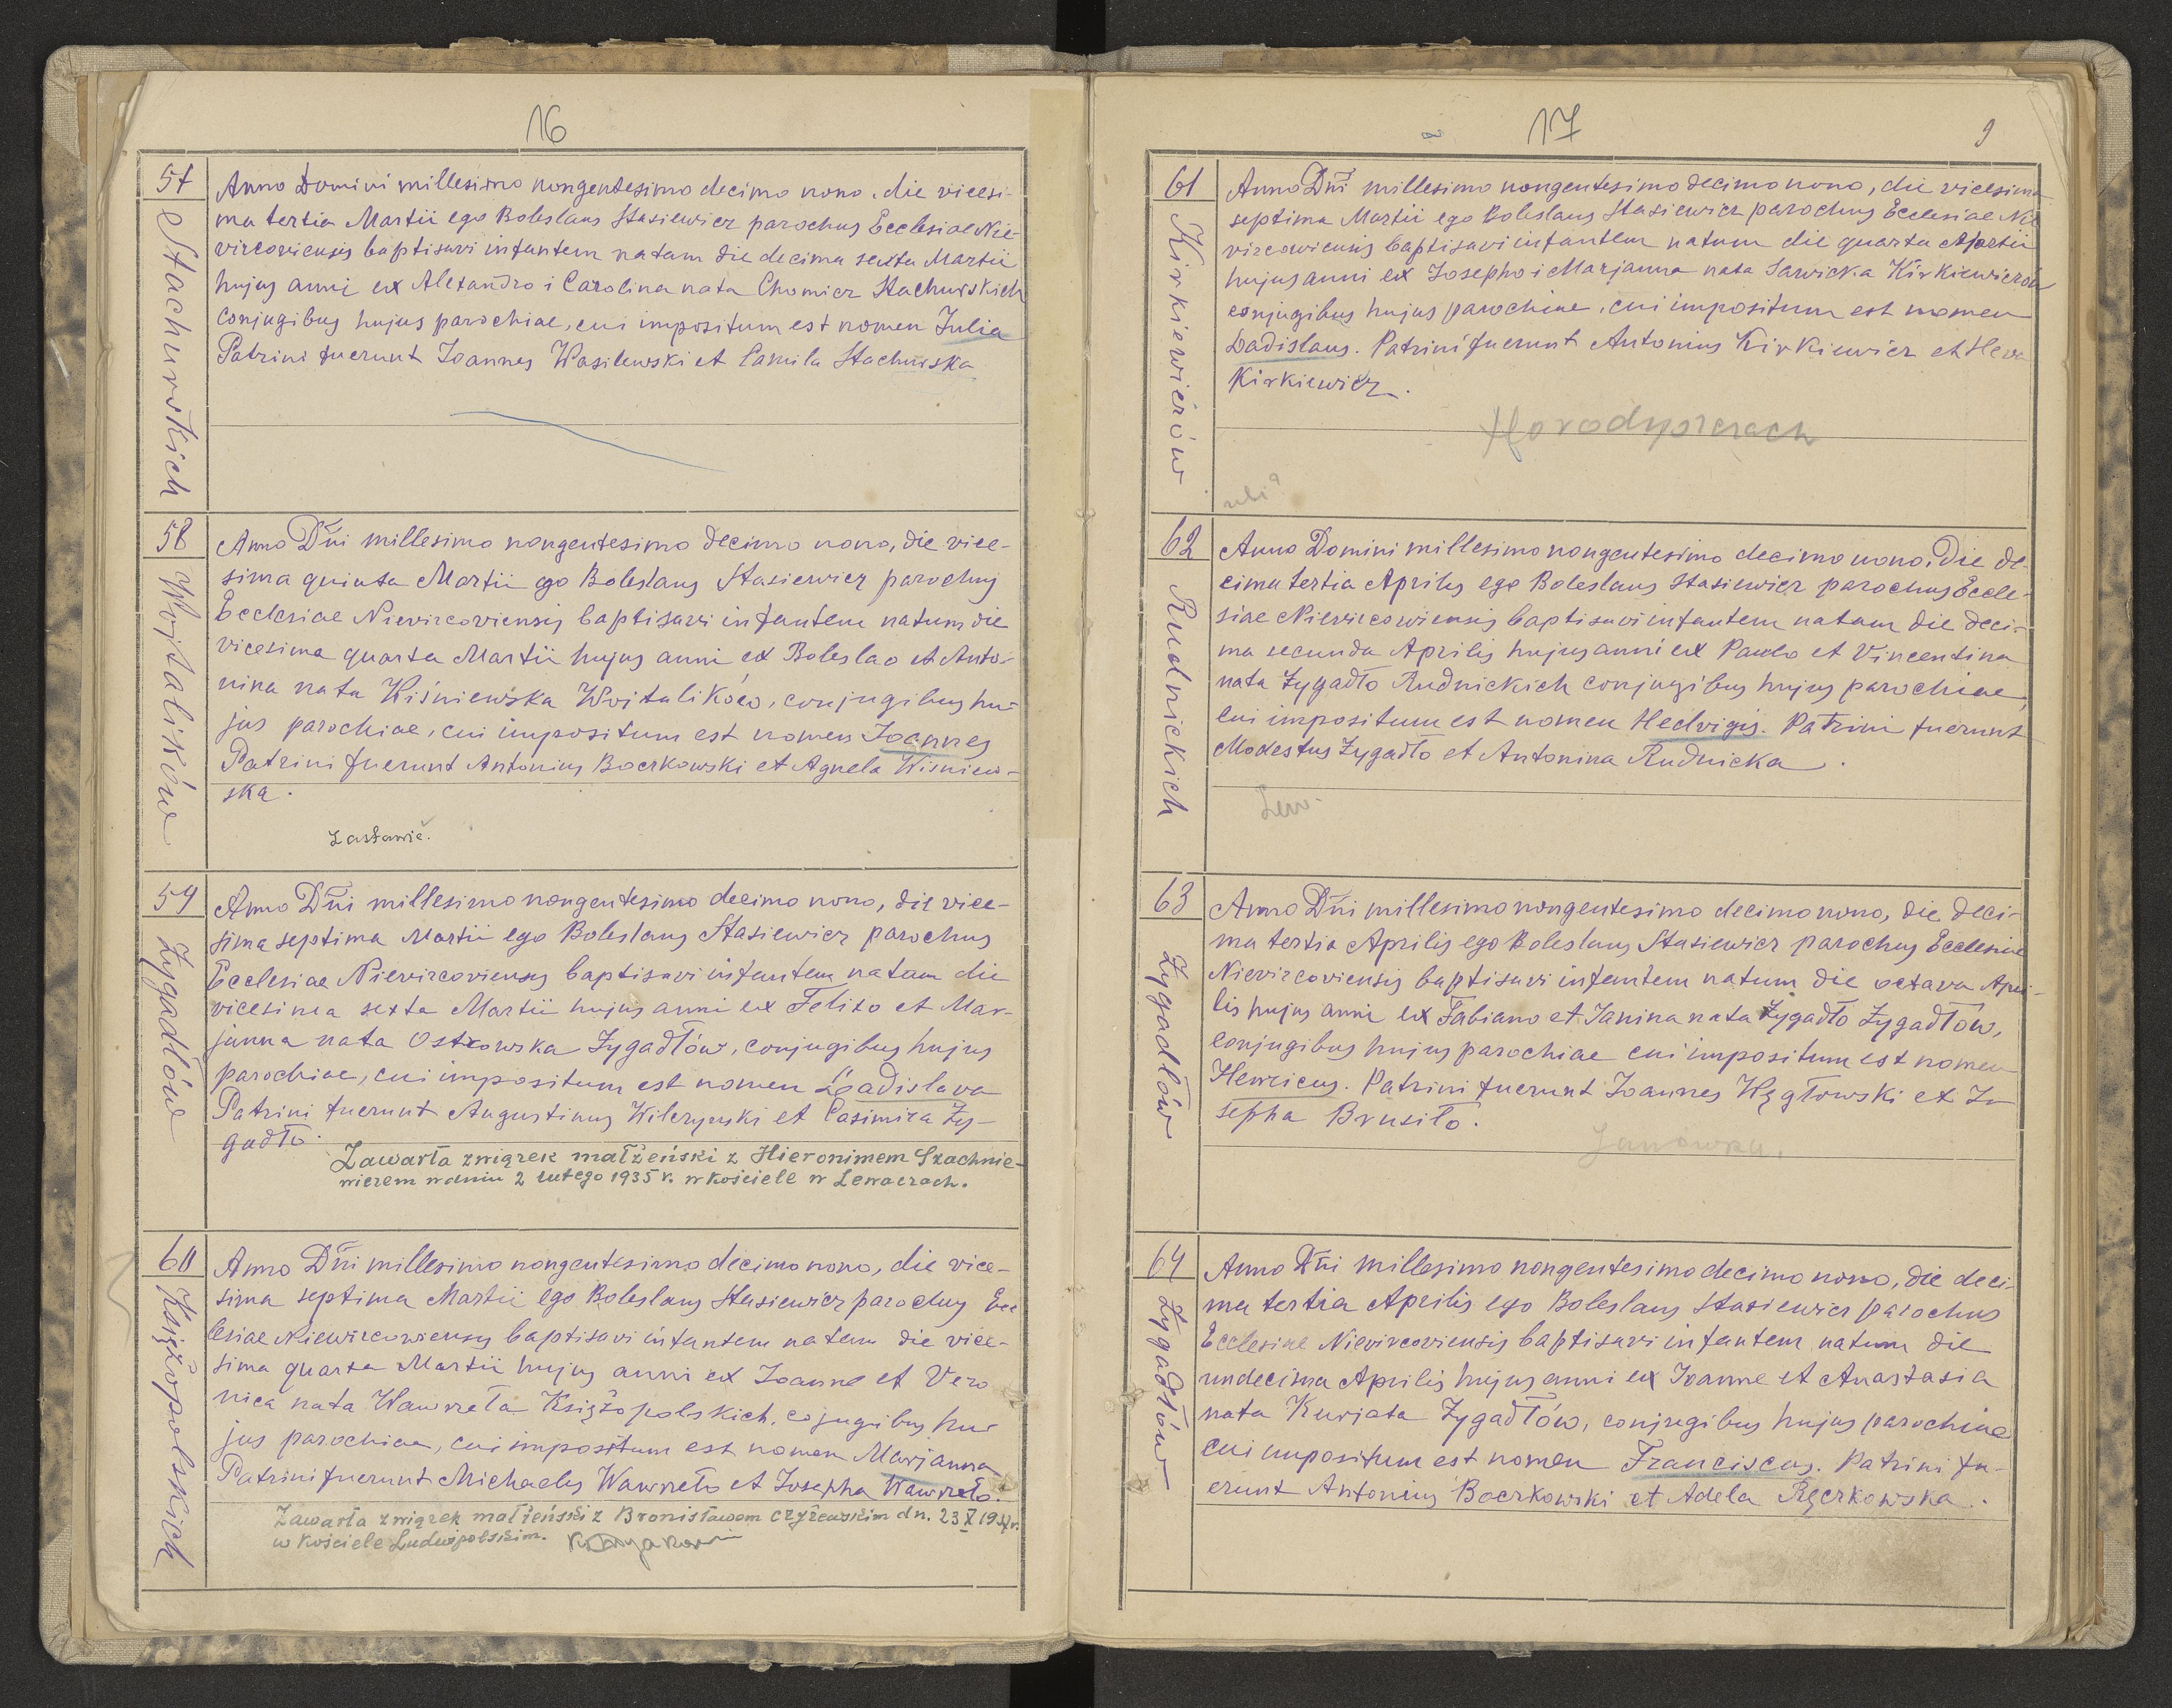 16
57
Stachurskich
Anno Domini millesimo nongentesimo decimo nono, die vicesi-
ma tertia Martii ego Boleslaus Stasiewicz parochus Ecclesiae Nie-
vircoviensis baptisavi infantem natam die decima sexta Martii
hujus anni ex Alexandro i Carolina nata Chomicz Stachurskich
conjugibus hujus parochiae, cui impositum est nomen Julia
Patrini fuerunt Joannes Wasilewski et Camila Stachurska
58
Wojtalików
Anno Dñi millesimo nongentesimo decimo nono, die vice-
sima quinta Martii ego Boleslaus Stasiewicz parochus
Ecclesiae Nievircoviensis baptisavi infantem natum die
vicesima quarta Martii hujus anni ex Boleslao et Anto-
nina nata Wiśniewska Wojtalików, conjugibus hu-
jus parochiae, cui impositum est nomen Joannes
Patrini fuerunt Antonius Boczkowski et Agnela Wisniew-
ska.
Zastawie.
59
Zygadłów
Anno Dñi millesimo nongentesimo decimo nono, die vice-
sima septima Martii ego Boleslaus Stasiewicz parochus
Ecclesiae Nievircoviensis baptisavi infantem natam die
vicesima sexta Martii hujus anni ex Felixo et Mar-
janna nata Ostrowska Zygadłów, conjugibus hujus
parochiae, cui impositum est nomen Ladislava
Patrini fuerunt Augustinus Wilczynski et Casimira Zy-
gadło.
Zawarła związek małżeński z Hieronimem Szachnie-
wiczem w dniu 2 lutego 1935 r. w kościele w Lewaczach.
60
Księżopolskich
Anno Dñi millesimo nongentesimo decimo nono, die vice-
sima septima Martii ego Boleslaus Stasiewicz parochus Ecc
lesiae Niewircowiensis baptisavi infantem natam die vice-
sima quarta Martii hujus anni ex Joanne et Vero
nica nata Wawrzeła Księżopolskich, cojugibus hu-
jus parochiae, cui impositum est nomen Marjanna
Patrini fuerunt Michaelis Wawrzeło et Josepha Wawrzeło.
Zawarła związek małżeński z Bronisławem Czyżewskim dn. 23 X 1937 r.
w kościele Ludwipolskim.
17
9
61
Kirkiewiczów
Anno Dñi millesimo nongentesimo decimo nono, die vicesima
septima Martii ego Boleslaus Stasiewicz parochus Ecclesiae Nie
vircowiensis baptisavi infantem natum die quarta Martii
hujus anni ex Josepho i Marjanna nata Sawicka Kirkiewiczów
conjugibus hujus parochiae, cui impositum est nomen
Ladislaus. Patrini fuerunt Antonius Kirkiewicz et Heva
Kirkiewicz.
Horodyszczach
ubi?
62
Rudnickich
Anno Domini millesimo nongentesimo decimo nono, die de-
cima tertia Aprilis ego Boleslaus Stasiewicz parochus Eccle-
siae Nievircowiensis baptisavi infantem natam die deci-
ma secunda Aprilis hujus anni ex Paulo et Vincentina
nata Zygadło Rudnickich conjugibus hujus parochiae,
cui impositum est nomen Hedvigis. Patrini fuerunt
Modestus Zygadło et Antonina Rudnicka.
Lew-
63
Zygadłów
Anno Dñi millesimo nongentesimo decimo nono, die deci-
ma tertia Aprilis ego Boleslaus Stasiewicz parochus Ecclesiae
Nievircoviensis baptisavi infantem natum die octava Apri-
lis hujus anni ex Fabiano et Janina nata Zygadło Zygadłów,
conjugibus hujus parochiae cui impositum est nomen
Henricus. Patrini fuerunt Joannes Węgłowski et Jo
sepha Brusiło.
Janówka.
64
Zygadłów
Anno Dñi millesimo nongentesimo decimo nono, die deci-
ma tertia Aprilis ego Boleslaus Stasiewicz parochus
Ecclesiae Nievircoviensis baptisavi infantem natum die
undecima Aprilis hujus anni ex Joanne et Anastasia
nata Kurjata Zygadłów, conjugibus hujus parochiae
cui impositum est nomen Franciscus. Patrini fu-
erunt Antonius Boczkowski et Adela Ręczkowska.